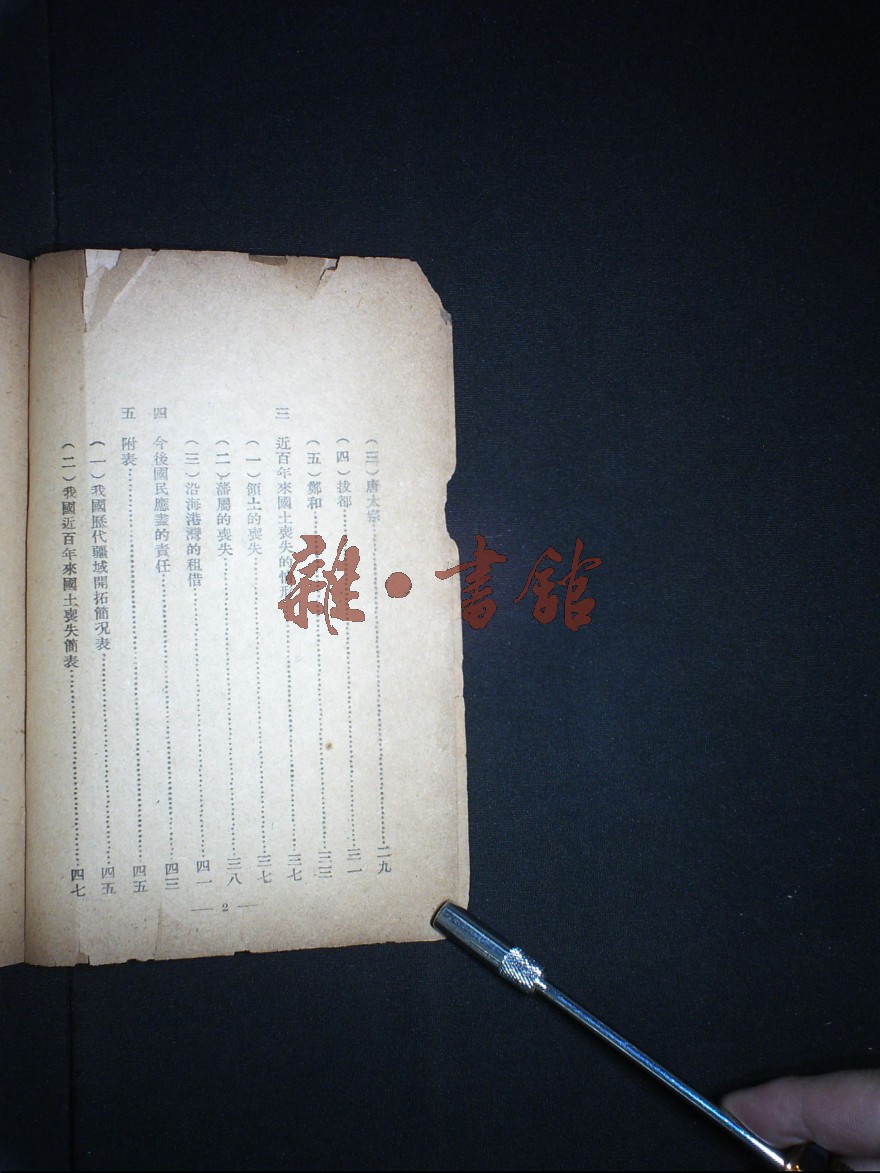 (三)唐太宗……二九
(四)拔都……三一
(五)鄭和……三三
三 近百年來國土喪失的情形……三七
(一)領土的喪失……三七
(二)藩屬的喪失……三八
(三)沿海港灣的租借……四一
四 今後國民應盡的責任……四三
五 附表……四五
(一)我國歷代疆域開拓簡況表……四五
(二)我國近百年來國土喪失簡表……四七
— 2 —
雜·書館